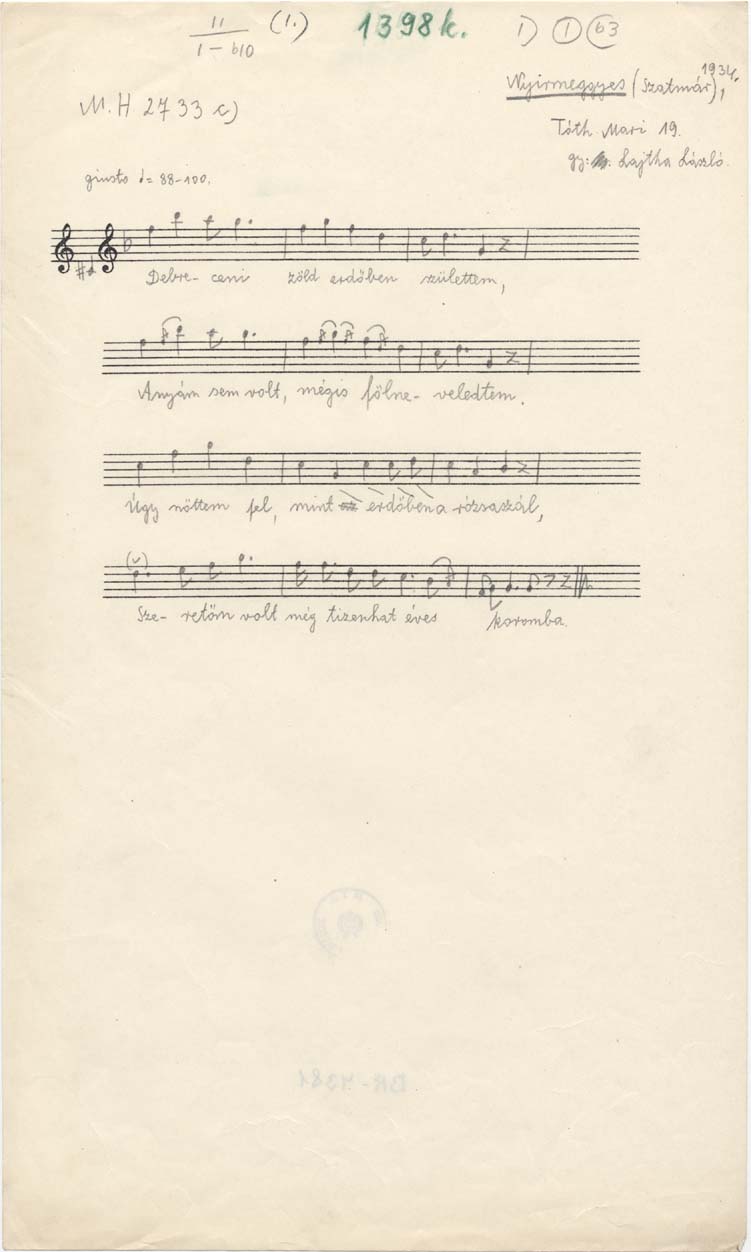 11 (1.) 1398k. 1) 1 63
1 - b10
Nyirmeggyes (Szatmár), 1934.
M. H 2733 c)
Tóth Mari 19.
gy: Lajtha László.
giusto = 88-100.
Debre- ceni zöld erdőben születtem,
Anyám sem volt, mégis fölne- veledtem.
Úgy nőttem fel, mint az erdőben a rózsaszál,
Sze- retőm volt még tizenhat éves koromba.